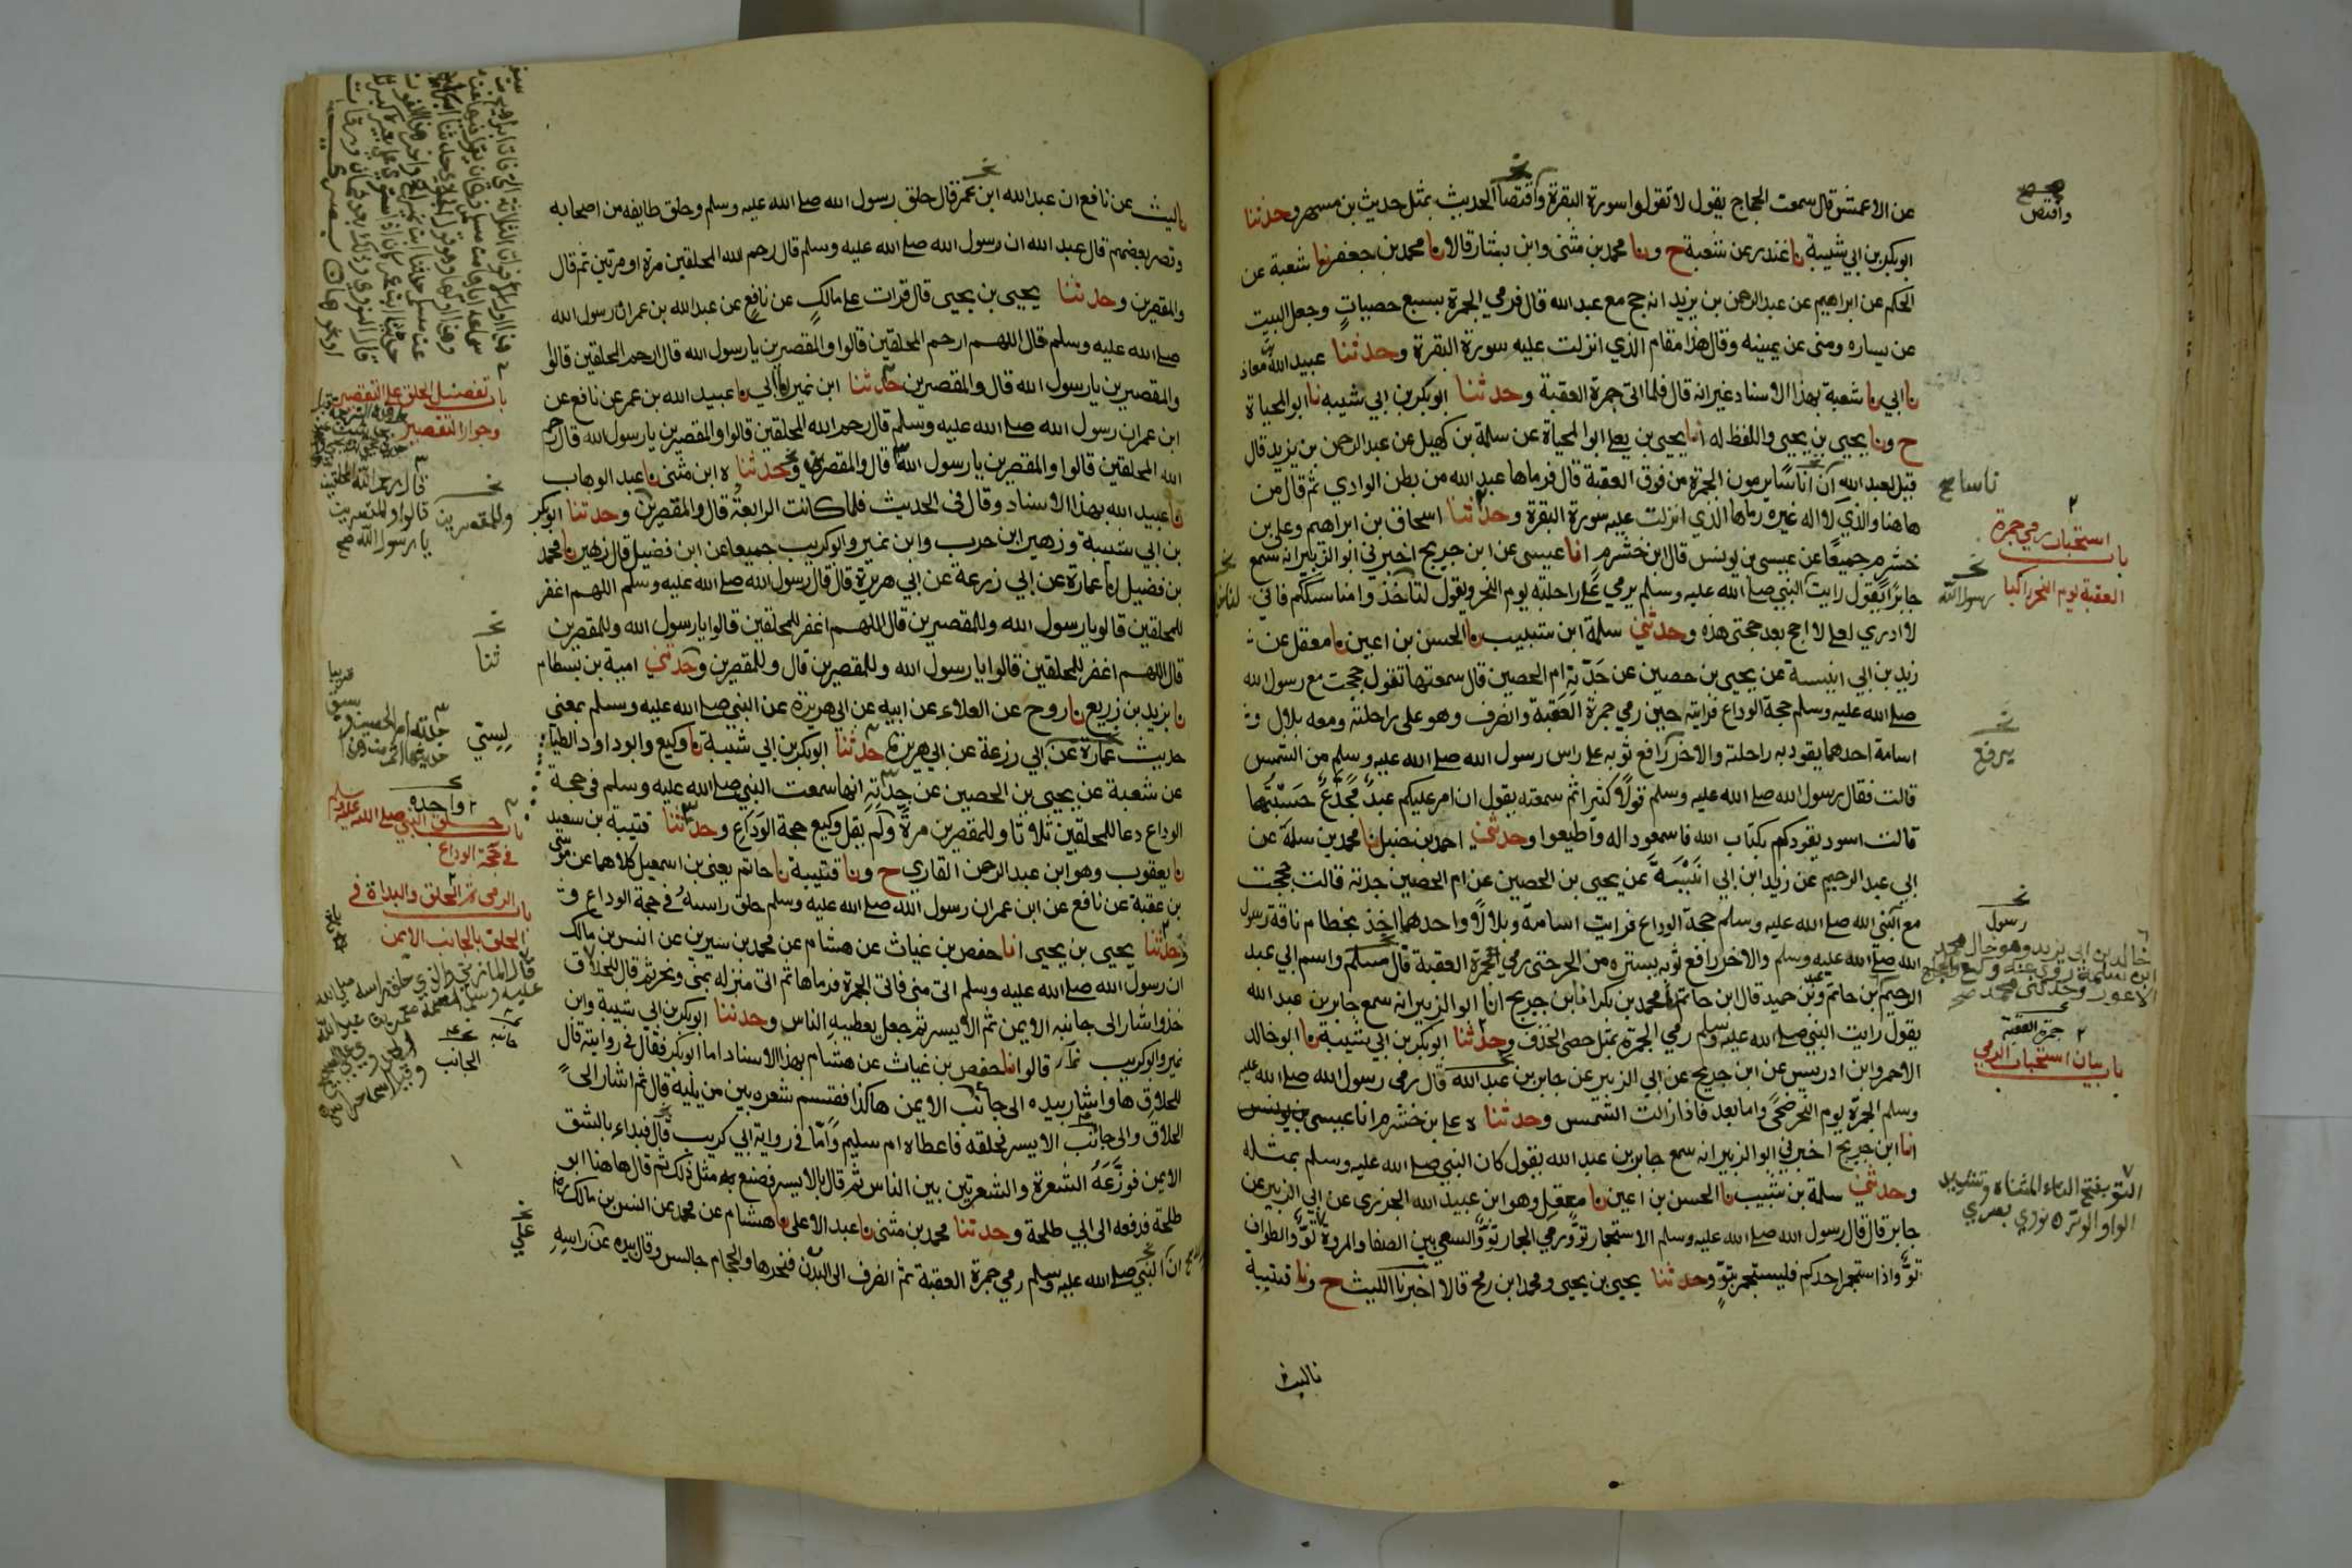 عن الاعمش قال سمعت الحجاج يقول لا تقولوا سورة البقرة واقتصا الحديث بمثل حديث بن مسهر وحدثنا
ابوبكر بن ابي شيبة نا غندر عن شعبة ح ونا محمد بن مثنى وابن بشار قالا نا محمد بن جعفر نا شعبة عن
الحكم عن ابراهيم عن عبد الرحمن بن يزيد انه حج مع عبد الله قال فرمي الجمرة بسبع حصيات وجعل البيت
عن يساره ومنى عن يمينه وقال هذا مقام الذي انزلت عليه سورة البقرة وحدثنا عبيد الله بن معاذ
نا ابي نا شعبة بهذا الاسناد غير انه قال فلما اتى جمرة العقبة وحدثنا ابوبكر بن ابي شيبه نا ابو المحياة
ح ونا يحيى بن يحيى واللفظ له انا يحيى بن يعلى ابو المحياة عن سلمة بن كهيل عن عبد الرحمن بن يزيد قال
قيل لعبد الله ان اناسا يرمون الجمرة من فوق العقبة قال فرماها عبد الله من بطن الوادي ثم قال من
هاهنا والذي لا اله غيره رماها الذي انزلت عليه سورة البقرة وحدثنا اسحاق بن ابراهيم وعلي بن
خشرم جميعا عن عيسى بن يونس قال ابن خشرم انا عيسى عن ابن جريج اخبرني ابو الزبير انه سمع
جابرا يقول رايت النبي صلى الله عليه وسلم يرمي على راحلته يوم النحر ويقول لتاخذوا مناسككم فاني
لا ادري لعلي لا احج بعد حجتى هذه وحدثني سلمة ابن شبيب نا الحسن بن اعين نا معقل عن
زيد بن ابي انيسة عن يحيى بن حصين عن جدته ام الحصين قال سمعتها تقول حججت مع رسول الله
صلى الله عليه وسلم حجة الوداع فرايته حين رمي جمرة العقبة وانصرف وهو على راحلته ومعه بلال و
اسامة احدهما يقود به راحلته والاخر رافع ثوبه على راس رسول الله صلى الله عليه وسلم من الشمس
قالت فقال رسول الله صلى الله عليه وسلم قولا كثيرا ثم سمعته يقول ان امر عليكم عبد مجدع حسبتها
قالت اسود يقودكم بكتاب الله فاسمعوا له واطيعوا وحدثني احمد بن حنبل نا محمد بن سلمة عن
ابي عبد الرحيم عن زيد ابن ابي انيسة عن يحيى بن الحصين عن ام الحصين جدته قالت حججت
مع النبي صلى الله عليه وسلم حجة الوداع فرايت اسامة وبلالا واحدهما اخذ بخطام ناقة رسول
الله صلى الله عليه وسلم والاخر رافع ثوبه يستره من الحر حتى رمي جمرة العقبة قال مسلم واسم ابي عبد
يقول رايت النبي صلى الله عليه وسلم رمي الجمرة بمثل حصى الخذف وحدثنا ابوبكر بن ابي شيبة نا ابو خالد
الاحمر وابن ادريس عن ابن جريج عن ابي الزبير عن جابر بن عبد الله قال رمى رسول الله صلى الله عليه
وسلم الجمرة يوم النحر ضحى واما بعد فاذا زالت الشمس وحدثنا ه علي بن خشرم انا عيسى بن يونس
انا ابن جريج اخبرني ابو الزبير انه سمع جابر بن عبد الله يقول كان النبي صلى الله عليه وسلم بمثله
وحدثني سلمة بن شبيب نا الحسن بن اعين نا معقل وهو ابن عبيد الله الجزري عن ابي الزبير عن
جابر قال قال رسول الله صلى الله عليه وسلم الاستجمار تو ورمي الجمار تو والسعي بين الصفا والمروة تو والطواف
تو واذا استجمر احدكم فليستجمر بتو وحدثنا يحيى بن يحيى ومحمد ابن رمح قالا اخبرنا الليث ح ونا قتيبة
نا ليث
واقتص
باب استحباب رمي جمرة
العقبة يوم النحر راكبا
رسول الله
يرفع
رسول
جمرة العقبة
باب بيان استحباب الرمي
التو بفتح التاء المثناه وتشديد
الواو الوتر ٥ نووي بصري
نا ليث عن نافع ان عبد الله ابن عمر قال حلق رسول الله صلى الله عليه وسلم وحلق طايفه من اصحابه
وقصر بعضهم قال عبد الله ان رسول الله صلى الله عليه وسلم قال رحم الله المحلقين مرة او مرتين ثم قال
والمقصرين وحدثنا يحيى بن يحيى قال قرات على مالك عن نافع عن عبد الله بن عمر ان رسول الله
صلى الله عليه وسلم قال اللهم ارحم المحلقين قالوا والمقصرين يا رسول الله قال ارحم المحلقين قالوا
والمقصرين يا رسول الله قال والمقصرين حدثنا ابن نمير نا ابي نا عبيد الله بن عمر عن نافع عن
ابن عمر ان رسول الله صلى الله عليه وسلم قال رحم الله المحلقين قالوا والمقصرين يا رسول الله قال رحم
الله المحلقين قالوا والمقصرين يا رسول الله قال والمقصرين وحدثنا ه ابن مثنى نا عبد الوهاب
نا عبيد الله بهذا الاسناد وقال في الحديث فلما كانت الرابعة قال والمقصرين وحدثنا ابوبكر
بن ابي شيبة وزهير ابن حرب وابن نمير وابو كريب جميعا عن ابن فضيل قال زهير نا محمد
بن فضيل نا عمارة عن ابي زرعة عن ابي هريرة قال قال رسول الله صلى الله عليه وسلم اللهم اغفر
للمحلقين قالو يا رسول الله وللمقصرين قال اللهم اغفر للمحلقين قالوا يا رسول الله وللمقصرين
قال اللهم اغفر للمحلقين قالوا يا رسول الله وللمقصرين قال وللمقصرين وحدثني امية بن بسطام
نا يزيد بن زريع نا روح عن العلاء عن ابيه عن ابي هريرة عن النبي صلى الله عليه وسلم بمعنى
حديث عمارة عن ابي زرعة عن ابي هريرة حدثنا ابوبكر بن ابي شيبة نا وكيع وابو داود الطيالسي
عن شعبة عن يحيى بن الحصين عن جدته انها سمعت النبي صلى الله عليه وسلم في حجة
الوداع دعا للمحلقين ثلاثا وللمقصرين مرة ولم يقل وكيع حجة الوداع وحدثنا قتيبة بن سعيد
نا يعقوب وهو ابن عبد الرحمن القاري ح ونا قتيبة نا حاتم يعني بن اسمعيل كلاهما عن موسى
بن عقبة عن نافع عن ابن عمر ان رسول الله صلى الله عليه وسلم حلق راسه في حجة الوداع
وحدثنا يحيى بن يحيى انا حفص بن غياث عن هشام عن محمد بن سيرين عن انس بن مالك
ان رسول الله صلى الله عليه وسلم اتى منى فاتى الجمرة فرماها ثم اتى منزله بمنى ونحر ثم قال للحلاق
خذ واشار الى جانبه الايمن ثم الايسر ثم جعل يعطيه الناس وحدثنا ابوبكر بن ابي شيبة وابن
نمير وابو كريب قالوا انا حفص بن غياث عن هشام بهذا الاسناد اما ابوبكر فقال في روايته قال
للحلاق ها واشار بيده الى جانب الايمن هاكذا فقسم شعره بين من يليه قال ثم اشار الى
الحلاق والى جانب الايسر فحلقه فاعطاه ام سليم واما في رواية ابي كريب قال فبداء بالشق
الايمن فوزعه الشعرة والشعرتين بين الناس ثم قال بالايسر فصنع به مثل ذلك ثم قال هاهنا ابو
طلحة فدفعه الى ابي طلحة وحدثنا محمد بن مثنى نا عبد الاعلى نا هشام عن محمد عن انس بن مالك
ان النبي صلى الله عليه وسلم رمي جمرة العقبة ثم انصرف الى البدن فنحرها والحجام جالس وقال بيده عن راسه
باب تفضيل الحلق على التقصير
وجواز التقصير
قال رحم الله المحلقين
قالوا والمقصرين
يا رسول الله صح
وللمقصرين
ثنا
باب حلق النبي صلى الله عليه وسلم
في حجة الوداع
باب الرمي ثم الحلق والبداة في
الحلق بالجانب الايمن
الجانب
على